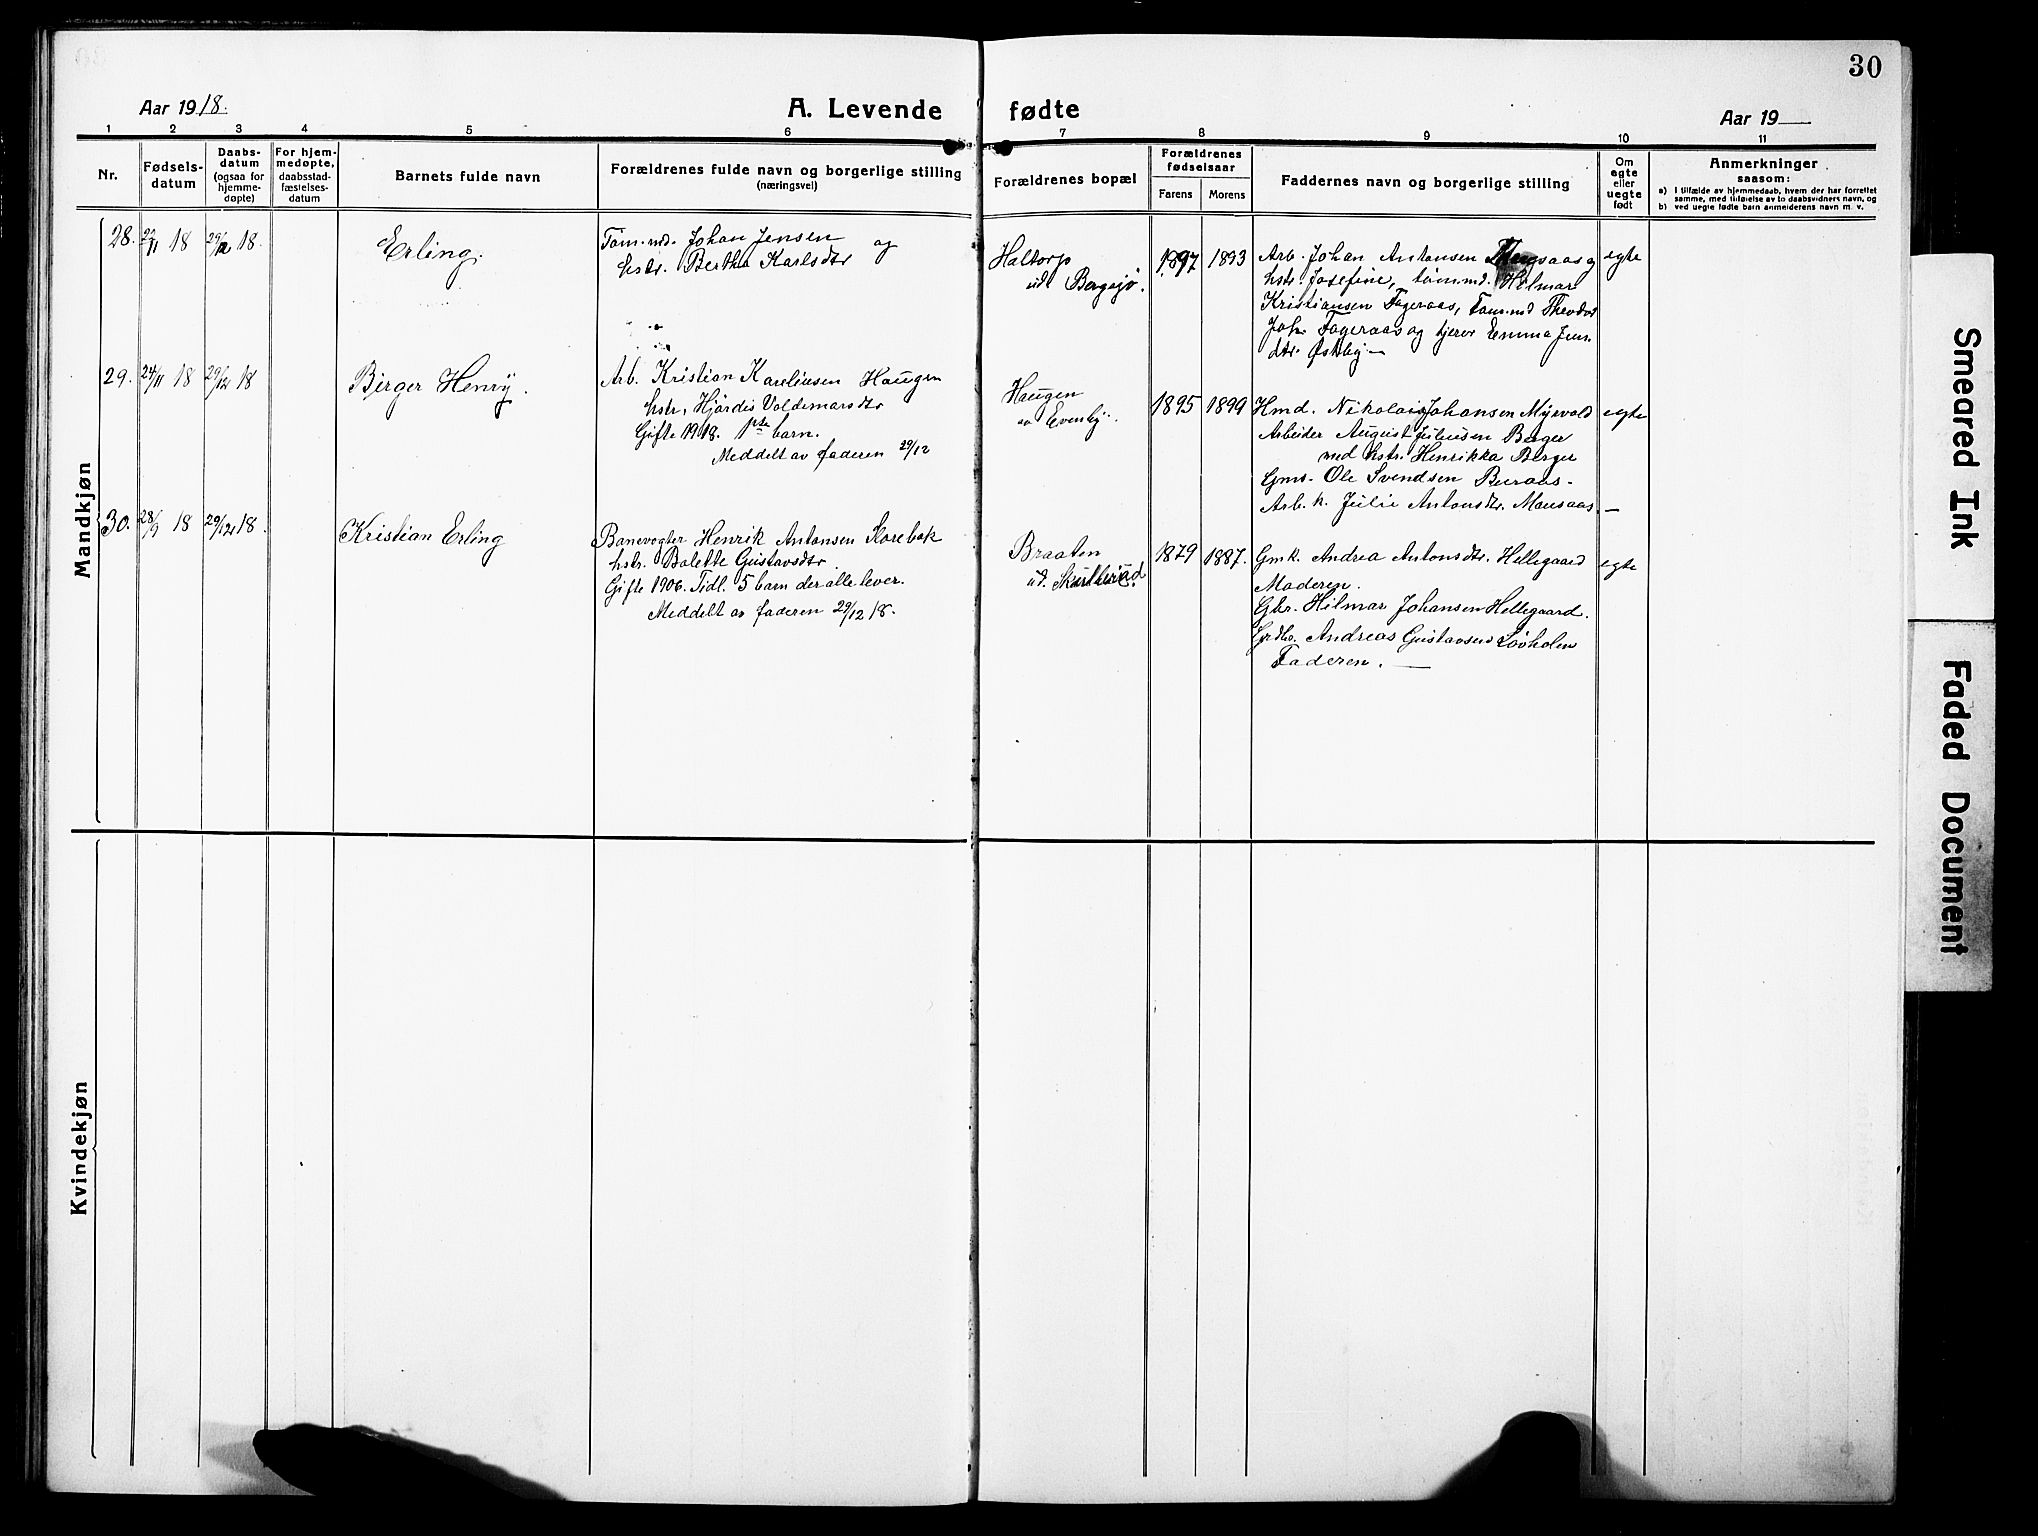 30
Aar 1918.
A. Levende fødte
Aar 19
1 2 3 4 5 6 7 8 9 10 11
Nr.
Fødsels-
datum
Daabs-
datum
(ogsaa for
hjemme-
døpte)
For hjem-
medøpte,
daabsstad-
fæstelses-
datum
Barnets fulde navn
Forældrenes fulde navn og borgerlige stilling
(næringsvei)
Forældrenes bopæl
Forældrenes
fødselsaar
Farens Morens
Faddernes navn og borgerlige stilling
Om
egte
eller
uegte
født
Anmerkninger
saasom:
a) I tilfælde av hjemmedaab, hvem der har forrettet
samme, med tilføielse av to daabsvidners navn, og
b) ved uegte fødte barn anmelderens navn m. v.
Mandkjøn
28. 18 29/12 18.
Erling.
Tøm.md. Johan Jensen og
hstr. Bertha Karlsdtr
Haltorp
ud. Bergsjø.
1897 1893
Arb. Johan Antonsen
hstr. Josefine, tømmd. Hilmar
Kristiansen Fageraas, Tøm.md Theodor
Joh. Fageraas og tjener Emma Jens
dtr. Østby —
egte
29. 24/11 18 29/12 18
Birger Henry.
Arb. Kristian Kareliusen Haugen
hstr. Hjørdis Valdemarsdtr
Gifte 1918. 1ste barn.
Meddelt av faderen 29/12
Haugen
av Evenby.
1895 1899
Hmd. Nikolai Johansen Myrvold
Arbeider August Juliusen Berger
med hstr. Henrikka Berger
Gms. Ole Svendsen Buraas-
Arb. k. Julie Antonsdtr. Mousaas. —
egte
30. 28/9 18 29/12 18.
Kristian Erling
Banevogter Henrik Antonsen Korebæk
hstr. Bolette Gustavsdtr.
Gifte 1906. Tidl. 5 barn der alle lever.
Meddelt av faderen 29/12 18.
Braaten
ud.
1879 1887.
Gmk. Andrea Antonsdtr. Hellegaard
Moderen.
Gbr. Hilmar Johansen Hellegaard.
Grdbr. Andreas Gustavsen Løvholen
Faderen. —
egte
Kvindekjøn
Smeared Ink
Faded Document